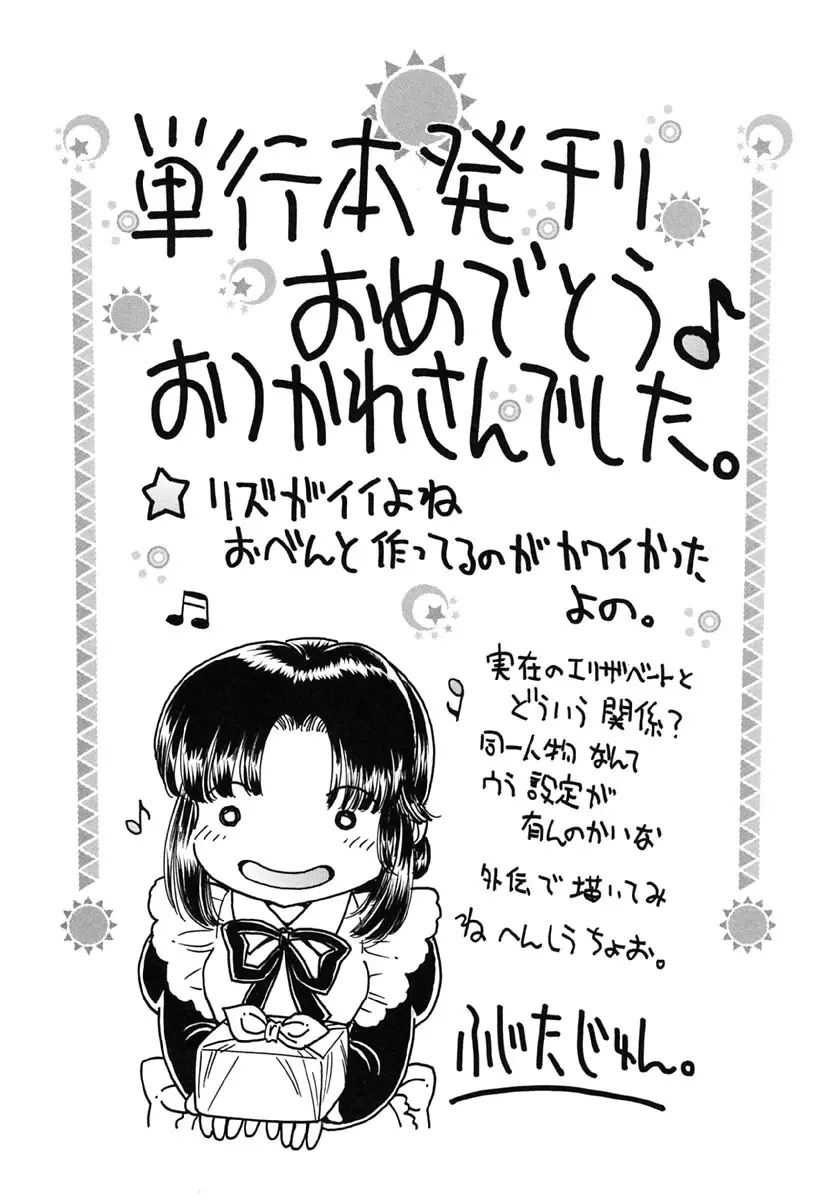 単行本発刊
おめでとう♪
おりがわさんでした。
☆リズがイイよね
おべんと作ってるのがカワイかった
よの。
実在のエリザベートと
どういう関係？
同一人物なんて
ウラ設定が
有んのかいな
外伝で描いてみ
ね へんしうちょお。
ふじたじゅん。